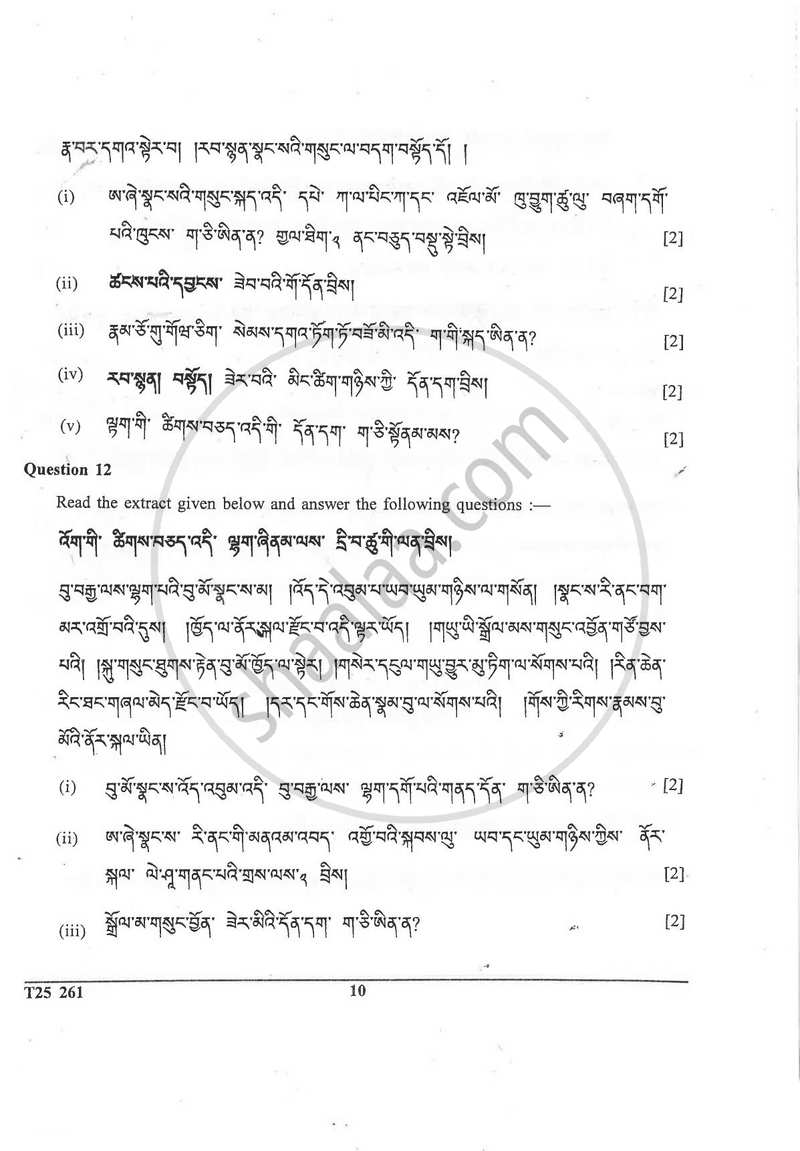 རྣ་བར་དགའ་སྟེར་བ། །རབ་སྙན་སྣང་སའི་གསུང་ལ་བདག་བསྟོད་དོ། །
(i) ཨ་ཞེ་སྣང་སའི་གསུང་སྐད་འདི་ དཔེ་ ཀ་ལ་པིང་ཀ་དང་ འཇོལ་མོ་ ཁུ་བྱུག་ཚུ་ལུ་ བཞག་དགོ་
པའི་ཁུངས་ ག་ཅི་ཨིན་ན? གྱལ་ཐིག་༢ ནང་བཅུད་བསྡུ་སྟེ་བྲིས། [2]
(ii) ཚངས་པའི་དབྱངས་ ཟེབ་བའི་གོ་དོན་བྲིས། [2]
(iii) རྣམ་ཅོ་གུ་གོཝ་ཅིག་ སེམས་དགའ་ཏོག་ཏོ་བཟོ་མི་འདི་ ག་གི་སྐད་ཨིན་ན? [2]
(iv) རབ་སྙན། བསྟོད། ཟེར་བའི་ མིང་ཚིག་གཉིས་ཀྱི་ དོན་དག་བྲིས། [2]
(v) ལྟག་གི་ ཚིགས་བཅད་འདི་གི་ དོན་དག་ ག་ཅི་སྟོནམ་མས? [2]
Question 12
Read the extract given below and answer the following questions :—
འོག་གི་ ཚིགས་བཅད་འདི་ ལྷག་ཞིནམ་ལས་ དྲི་བ་ཚུ་གི་ལན་བྲིས།
བུ་བརྒྱ་ལས་ལྷག་པའི་བུ་མོ་སྣང་ས་མ། །འོད་དེ་འབུམ་པ་ཡབ་ཡུམ་གཉིས་ལ་གསོན། །སྣང་ས་རི་ནང་བག་
མར་འགྲོ་བའི་དུས། །ཁྱོད་ལ་ནོར་སྐལ་རྫོང་བ་འདི་ལྟར་ཡོད། །གཡུ་ཡི་སྒྲོལ་མས་གསུང་འབྱོན་གཙོ་བྱས་
པའི། །སྐུ་གསུང་ཐུགས་རྟེན་བུ་མོ་ཁྱོད་ལ་སྟེར། །གསེར་དངུལ་གཡུ་བྱུར་མུ་ཏིག་ལ་སོགས་པའི། །རིན་ཆེན་
རིང་ཐང་གཞལ་མེད་རྫོང་བ་ཡོད། །དར་དང་གོས་ཆེན་སྣམ་བུ་ལ་སོགས་པའི། །གོས་ཀྱི་རིགས་རྣམས་བུ་
མོའི་ནོར་སྐལ་ཡིན།
(i) བུ་མོ་སྣང་ས་འོད་འབུམ་འདི་ བུ་བརྒྱ་ལས་ ལྷག་དགོ་པའི་གནད་དོན་ ག་ཅི་ཨིན་ན? [2]
(ii) ཨ་ཞེ་སྣང་ས་ རི་ནང་གི་མནའམ་འབད་ འགྱོ་བའི་སྐབས་ལུ་ ཡབ་དང་ཡུམ་གཉིས་ཀྱིས་ ནོར་
སྐལ་ ལེ་ཤ་གནང་པའི་གྲས་ལས་༢ བྲིས། [2]
(iii) སྒྲོལ་མ་གསུང་བྱོན་ ཟེར་མིའི་དོན་དག་ ག་ཅི་ཨིན་ན? [2]
T25 261 10
shaalaa.com